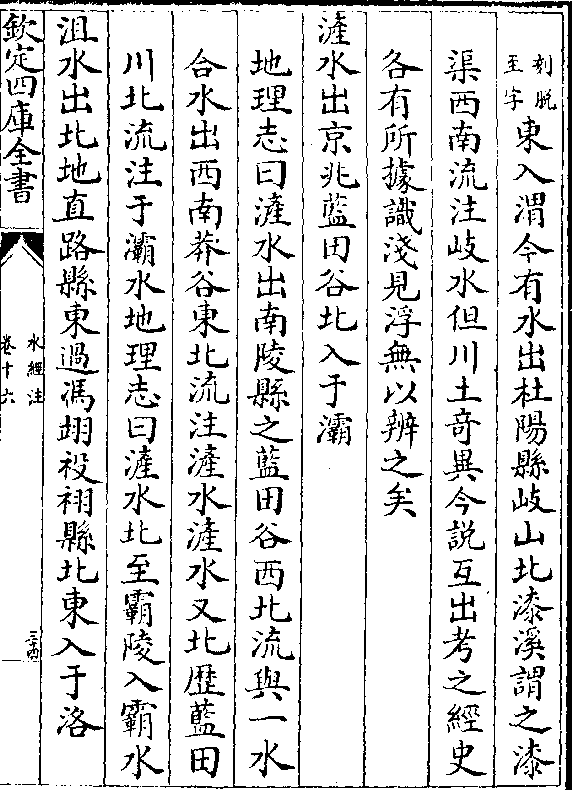 刻脱
至字
東入渭今有水出杜陽縣岐山北漆溪謂之漆
渠西南流注岐水但川土竒異今説互出考之經史
各有所據識淺見浮無以辨之矣
滻水出京兆藍田谷北入于灞
地理志曰滻水出南陵縣之藍田谷西北流與一水
合水出西南莽谷東北流注滻水滻水又北歴藍田
川北流注于灞水地理志曰滻水北至霸陵入霸水
沮水出北地直路縣東過馮翊祋祤縣北東入于洛
欽定四庫全書
水經注
卷十六